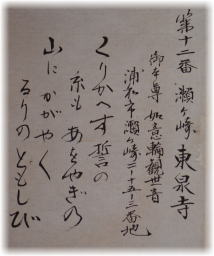 第十二番 瀬ヶ崎 東泉寺
御本尊 如意輪観世音
浦和市瀬ヶ崎二ー十五ー三番地
くりかへす誓の
糸もあをやぎの
山にかがやく
るりのともしび